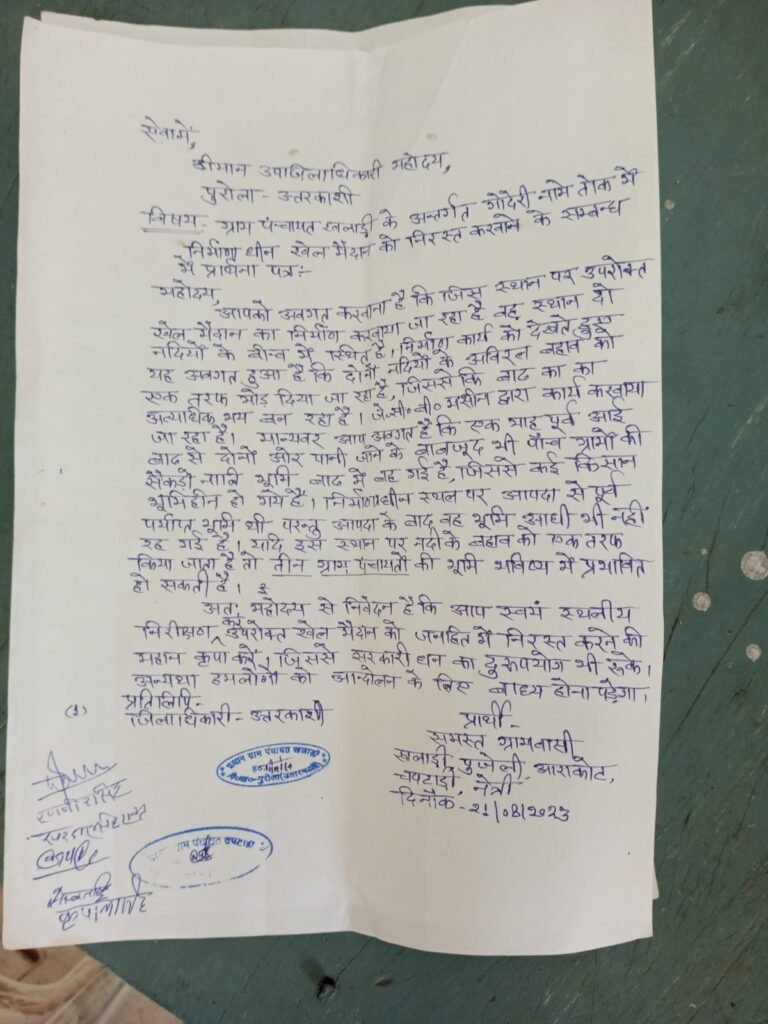 सेवामें,
श्रीमान उपाजिलाधिकारी महोदय,
पुरोला - उत्तरकाशी
विषय - ग्राम पंचायत खलाडी के अन्तर्गत गोदेरी नामे तोक में
निर्माणाधीन खेल मैदान को निरस्त करवाने के सम्बन्ध
में प्रार्थना पत्र :-
महोदय,
आपको अवगत करवाना है कि जिस स्थान पर उपरोक्त
खेल मैदान का निर्माण करवाया जा रहा है वह स्थान दो
नदियों के बीच में स्थित है। निर्माण कार्य को देखते हुए
यह अवगत हुआ है कि दोनों नदियों के अविरल बहाव को
एक तरफ मोड़ दिया जा रहा है, जिससे कि बाढ का का
अत्याधिक भय बन रहा है। जे॰सी॰बी॰ मशीन द्वारा कार्य करवाया
जा रहा है। मान्यवर आप अवगत है कि एक माह पूर्व आई
बाढ से दोनों ओर पानी जाने के बावजूद भी पाँच ग्रामों की
सैकड़ो नालि भूमि बाढ में बह गई है, जिससे कई किसान
भूमिहीन हो गये हैं। निर्माणाधीन स्थल पर आपदा से पूर्व
पर्याप्त भूमि थी परन्तु आपदा के बाद वह भूमि आधी भी नहीं
रह गई है। यदि इस स्थान पर नदी के बहाव को एक तरफ
किया जाता है तो तीन ग्राम पंचायतों की भूमि भविष्य में प्रभावित
हो सकती है।
अतः महोदय से निवेदन है कि आप स्वयं स्थलीय
निरीक्षण कर उपरोक्त खेल मैदान को जनहित में निरस्त करने की
महान कृपा करें। जिससे सरकारी धन का दुरूपयोग भी रूके।
अन्यथा हमलोगों को आन्दोलन के लिए बाध्य होना पड़ेगा।
प्रतिलिपि -
(1) जिलाधिकारी - उत्तरकाशी
प्रार्थी -
समस्त ग्रामवासी
खलाडी, पुजेली, आराकोट,
चपटाडी, नेत्री
दिनाँक - 21/08/2023
प्रधान ग्राम पंचायत खलाडी
वि०ख०-पुरोला (उत्तरकाशी)
रणवीर सिंह
ग्राम पंचायत चपटाडी